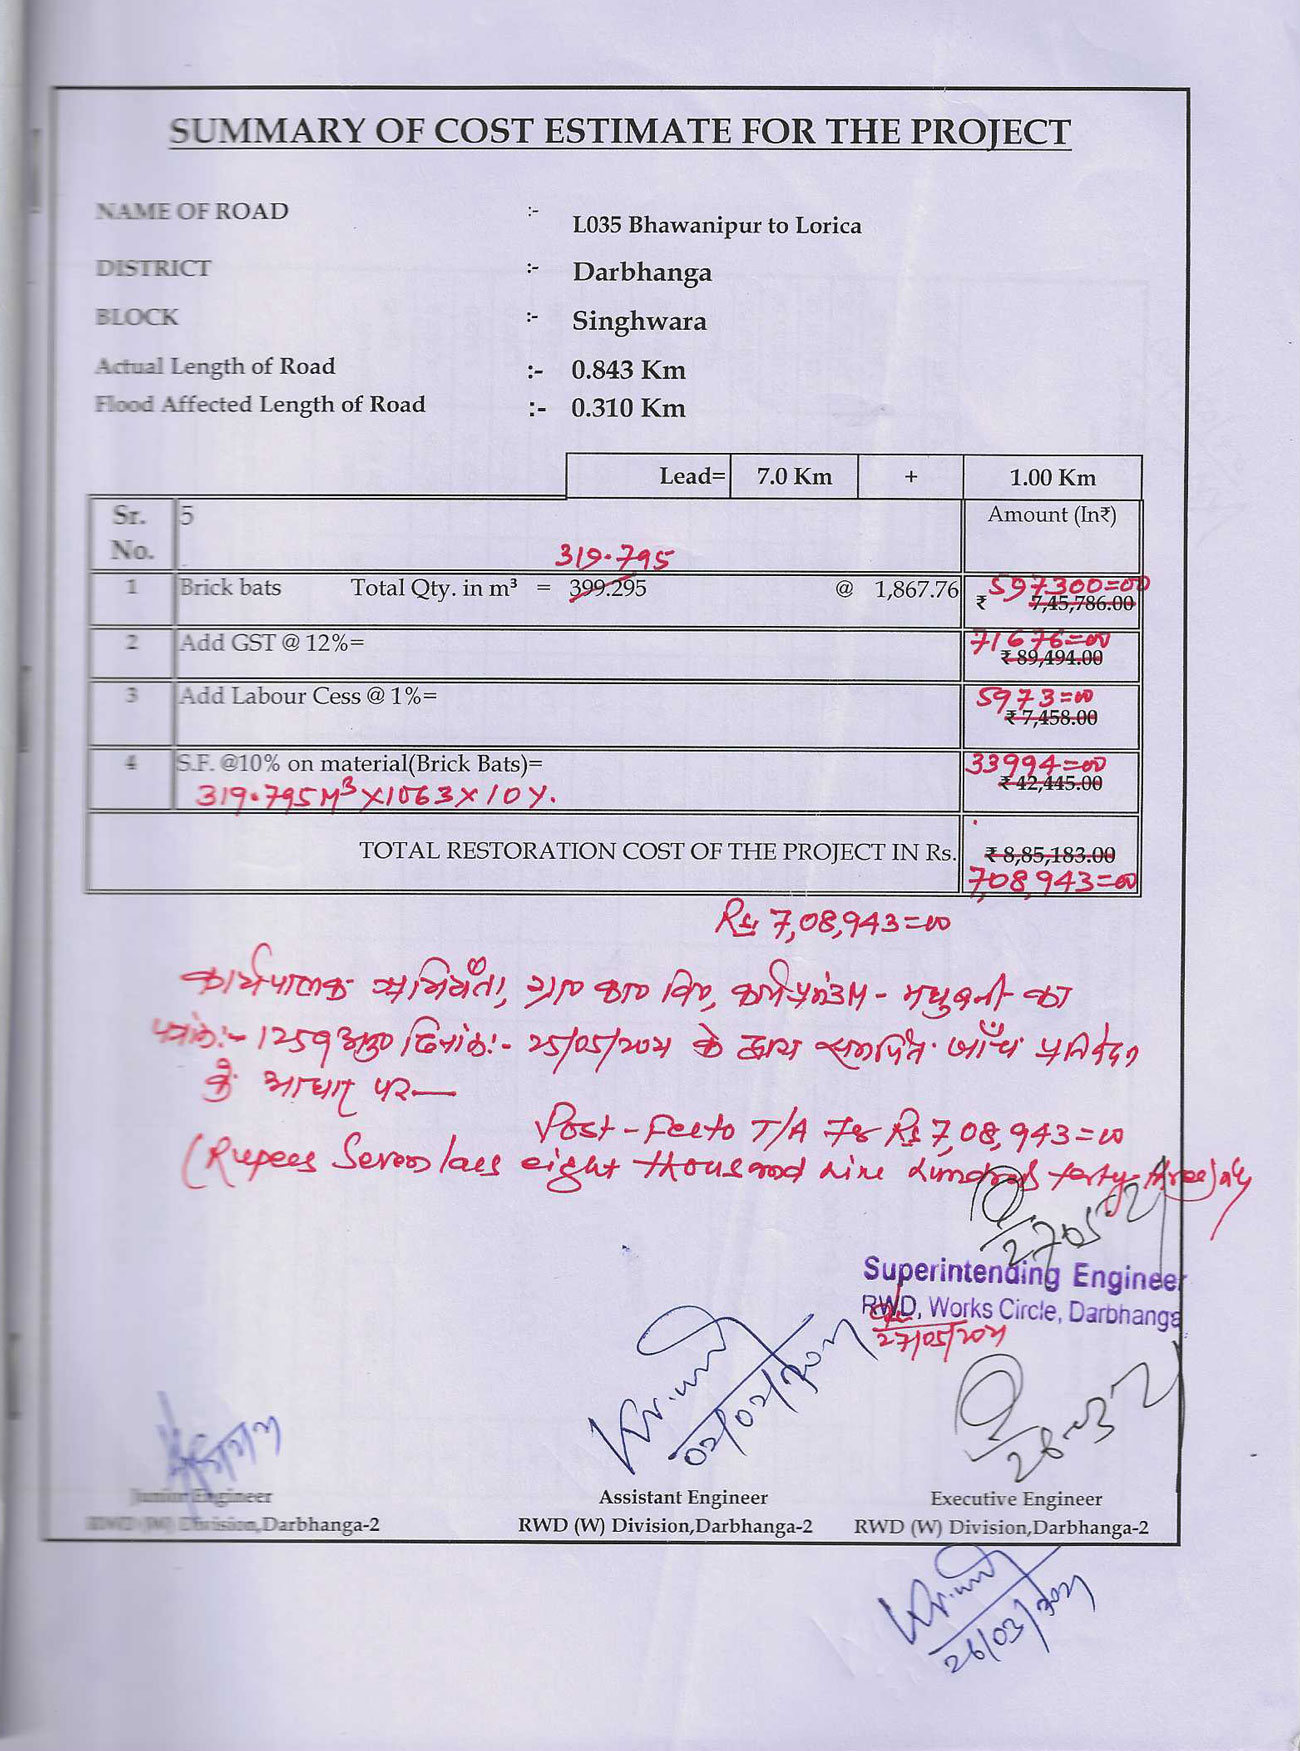 SUMMARY OF COST ESTIMATE FOR THE PROJECT
NAME OF ROAD :- L035 Bhawanipur to Lorica
DISTRICT :- Darbhanga
BLOCK :- Singhwara
Actual Length of Road :- 0.843 Km
Flood Affected Length of Road :- 0.310 Km
Lead= 7.0 Km + 1.00 Km
Sr. No. 5 Amount (In₹)
319.795
597300=00
1 Brick bats Total Qty. in m³ = 399.295 @ 1,867.76 ₹ 7,45,786.00
71676=00
2 Add GST @ 12%= ₹ 89,494.00
5973=00
3 Add Labour Cess @ 1%= ₹ 7,458.00
33994=00
4 S.F. @10% on material(Brick Bats)= ₹ 42,445.00
319.795M³X1063X10%.
TOTAL RESTORATION COST OF THE PROJECT IN Rs. ₹ 8,85,183.00
708,943=00
Rs 7,08,943=00
कार्यपालक अभियंता, ग्रा० का० वि०, कार्य प्रमंडल - मधुबनी का
पत्रांक:- 1259 अनु० दिनांक:- 25/05/2021 के द्वारा समर्पित जाँच प्रतिवेदन
के आधार पर—
Post-Facto T/A for Rs 7,08,943=00
(Rupees Seven lacs eight thousand nine hundred forty three) only
27.05.21
Superintending Engineer
RWD, Works Circle, Darbhanga
27/05/2021
02/02/2021
Junior Engineer
RWD (W) Division,Darbhanga-2
Assistant Engineer
RWD (W) Division,Darbhanga-2
Executive Engineer
RWD (W) Division,Darbhanga-2
26/03/2021